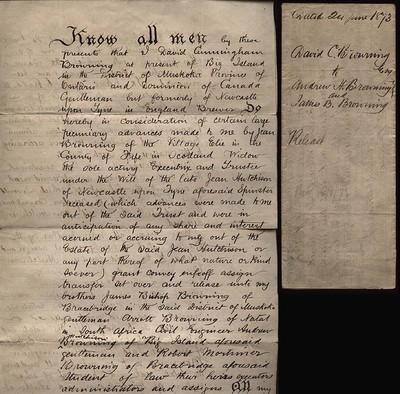 Know all men by these
presents that I David Cunningham
Browning at present of Big Island
in the District of Muskoka Province of
Ontario and Dominion of Canada
Gentleman but formerly of Newcastle
upon Tyne in England Brewer Do
hereby in consideration of certain large
pecuniary advances made to me by Jean
Browning of the Village Elie in the
County of Fife in Scotland Widow
the sole acting Executrix and Trustee
under the Will of the late Jean Hutchison
of Newcastle upon Tyne aforesaid Spinster
deceased (which advances were made to me
out of the said Trust and were in
anticipation of any share and interest
accrued or accruing to me out of the
Estate of the said Jean Hutchison or
any part thereof of what nature or kind
soever) grant convey enfeoff assign
transfer set over and release unto my
brothers James Bishop Browning of
Bracebridge in the said District of Muskoka
Gentleman Arrott Browning of Natal
in South Africa Civil Engineer Andrew
Browning of Big Island aforesaid
gentleman and Robert Mortimer
Browning of Bracebridge aforesaid
Student of Law their heirs executors
administrators and assigns All my
Dated June 1873
David C. Browning
Esq
to
Andrew H. Browning
and
James B. Browning
Release